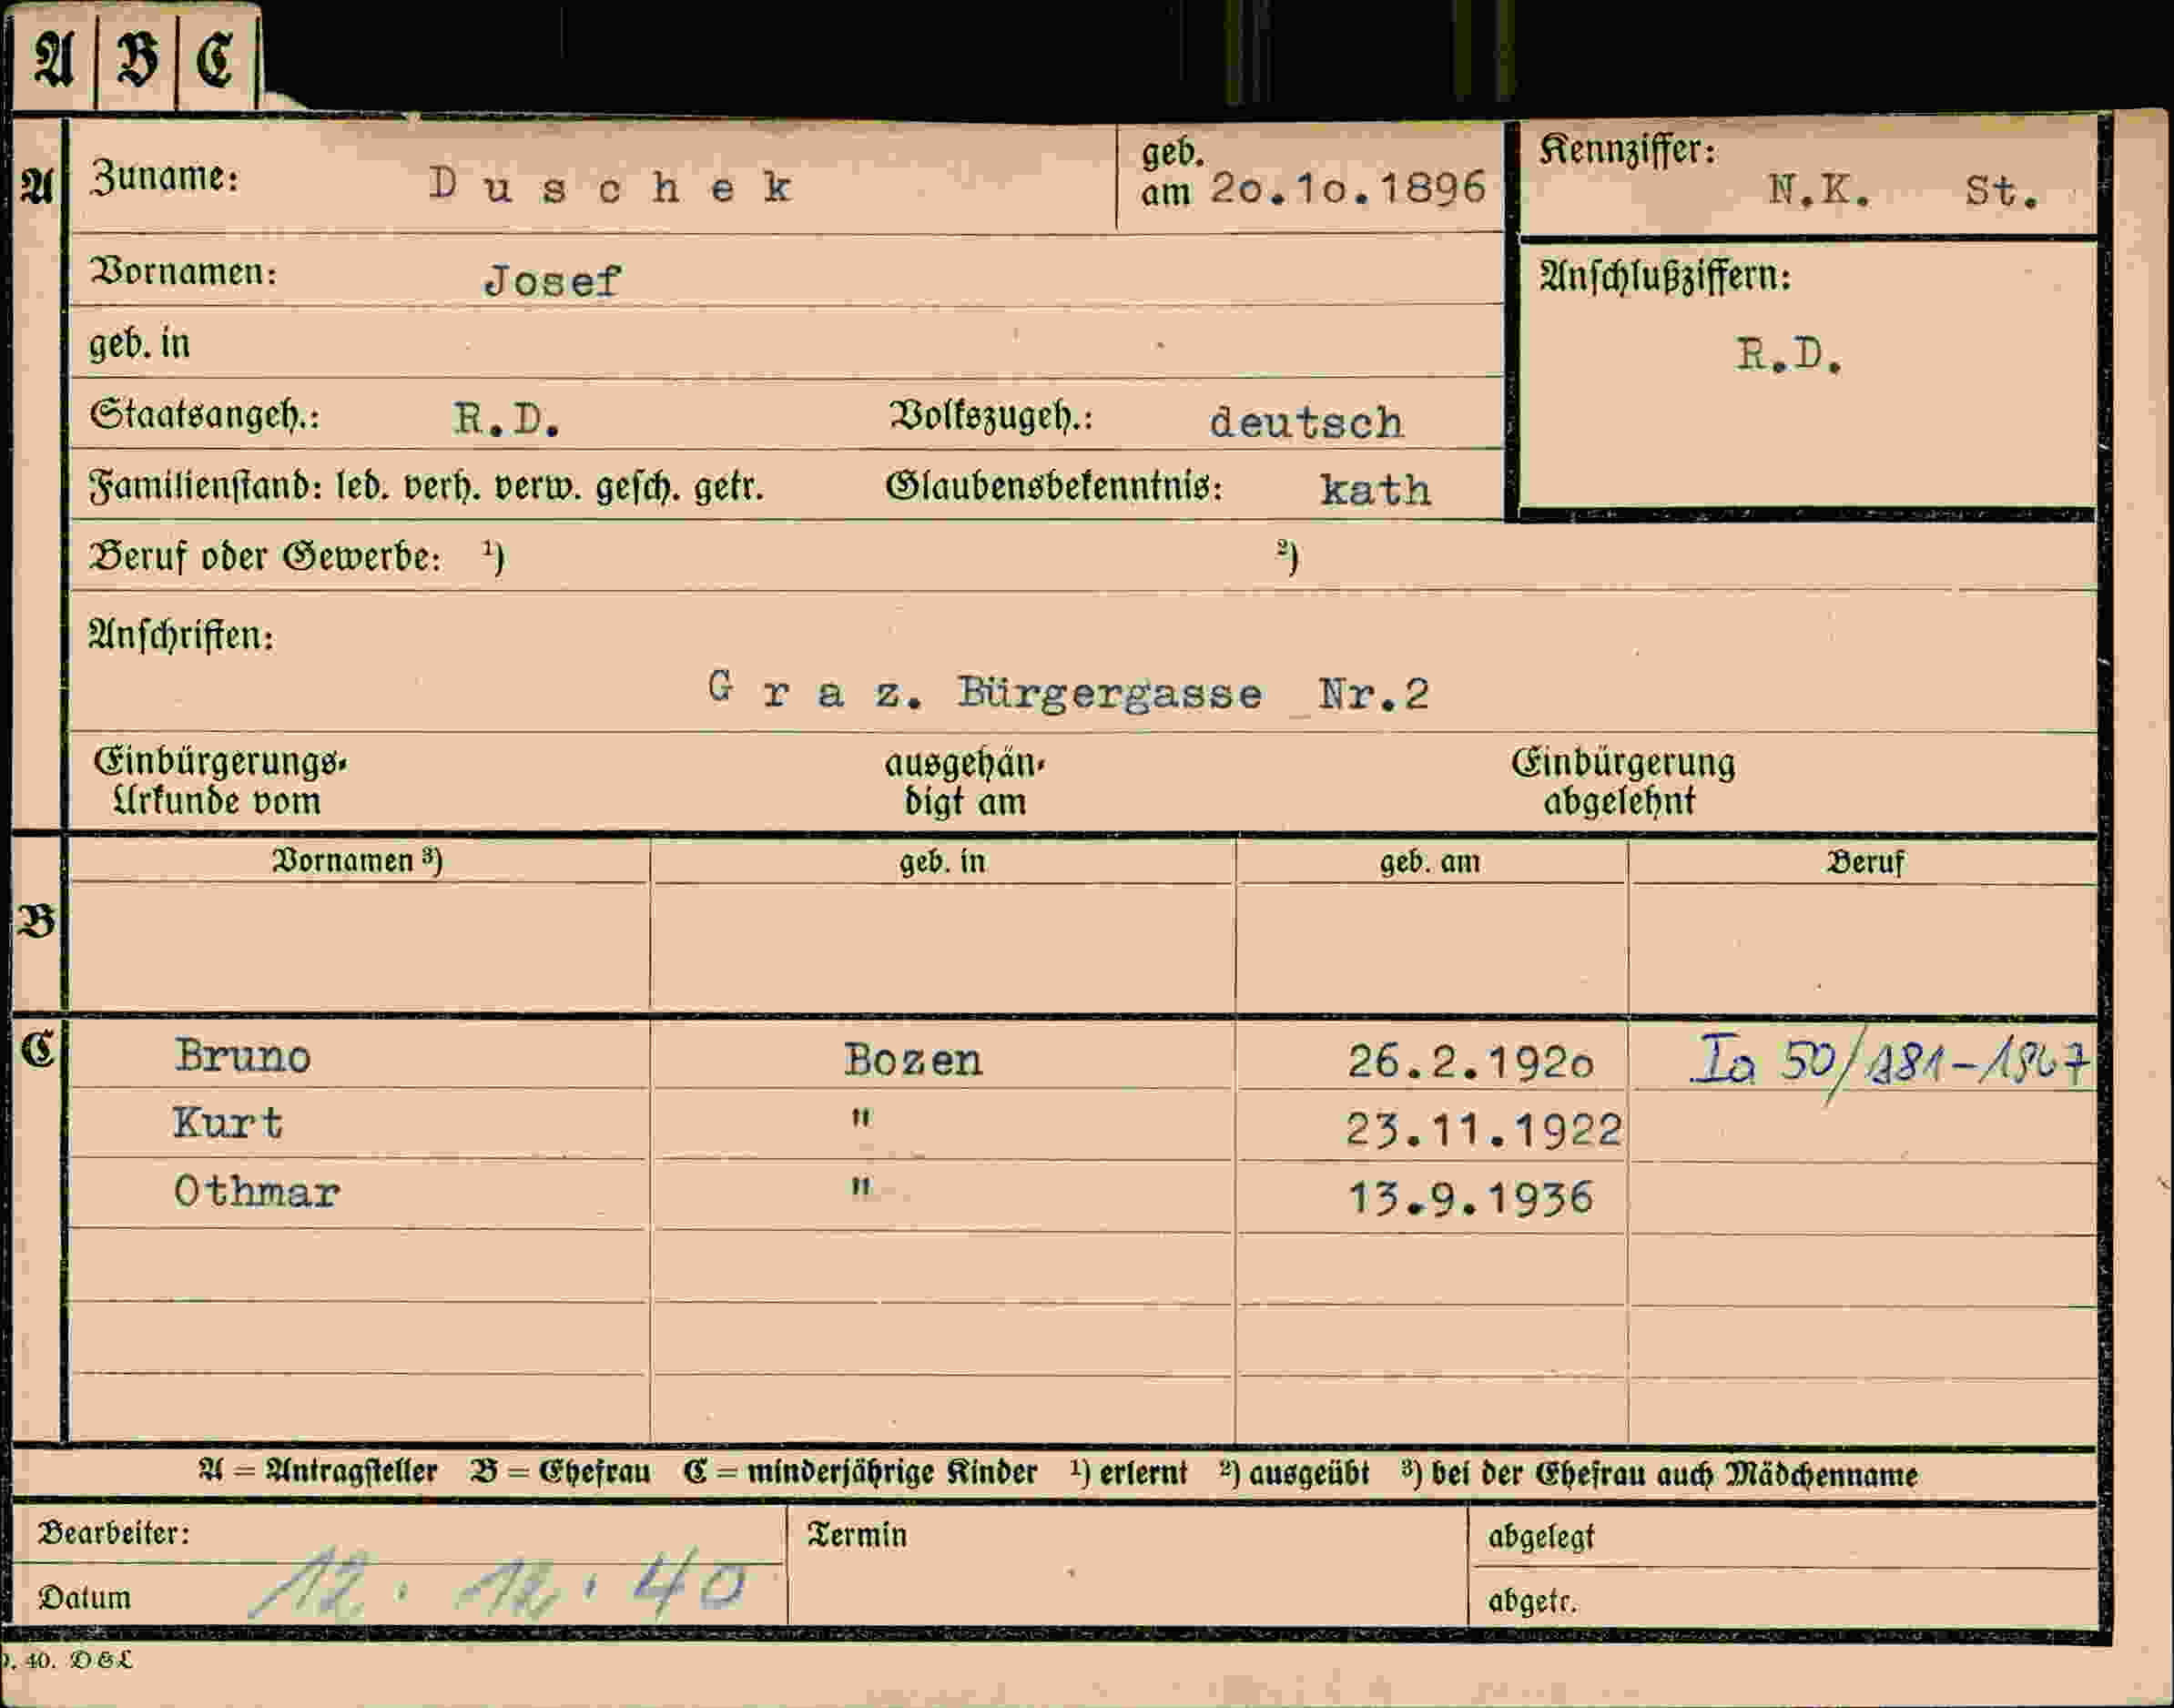 A B C
A
Zuname: Duschek geb. am 20.10.1896 Kennziffer: N.K. St.
Vornamen: Josef Anschlußziffern:
geb. in R.D.
Staatsangeh.: R.D. Volkszugeh.: deutsch
Familienstand: led. verh. verw. gesch. getr. Glaubensbekenntnis: kath
Beruf oder Gewerbe: ¹) ²)
Anschriften:
Graz. Bürgergasse Nr.2
Einbürgerungs- ausgehän- Einbürgerung
Urkunde vom digt am abgelehnt
Vornamen ³) geb. in geb. am Beruf
B
C Bruno Bozen 26.2.1920 Ia 50/181-1867
Kurt " 23.11.1922
Othmar " 13.9.1936
A = Antragsteller B = Ehefrau C = minderjährige Kinder ¹) erlernt ²) ausgeübt ³) bei der Ehefrau auch Mädchenname
Bearbeiter: Termin abgelegt
Datum 12. 12. 40 abgetr.
40. D&L